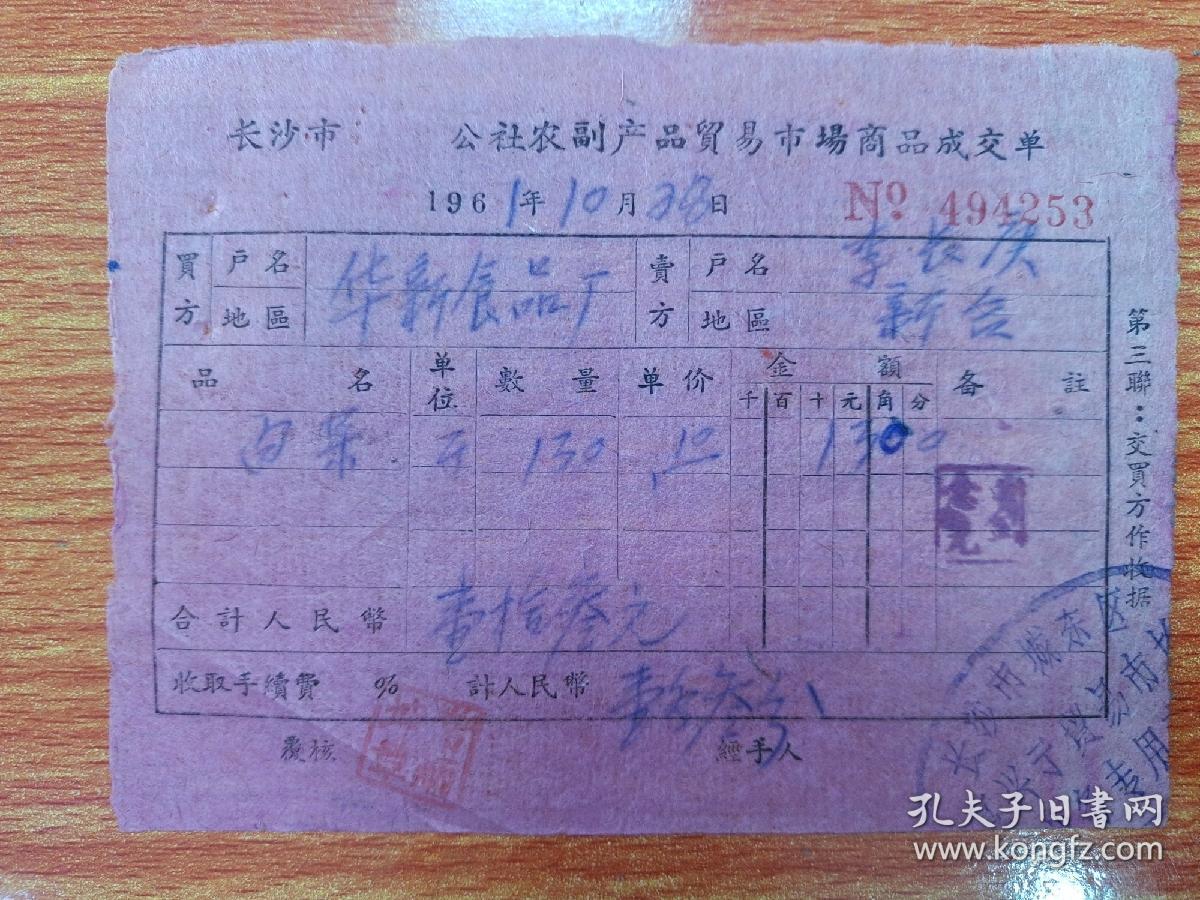 长沙市 公社农副产品貿易市場商品成交单
1961年10月28日 № 494253
買方 户名 华新食品厂 賣方 户名 李长庚
地區 地區 新合
品名 单位 數量 单价 金額 备註
千百十元角分
白菜 斤 130 .10 1300
合計人民幣 壹拾叁元
收取手續費 % 計人民幣 壹角叁分
覆核 經手人
第三聯：交買方作收据
长沙市城东区
易市场
专用
孔夫子旧书网
www.kongfz.com